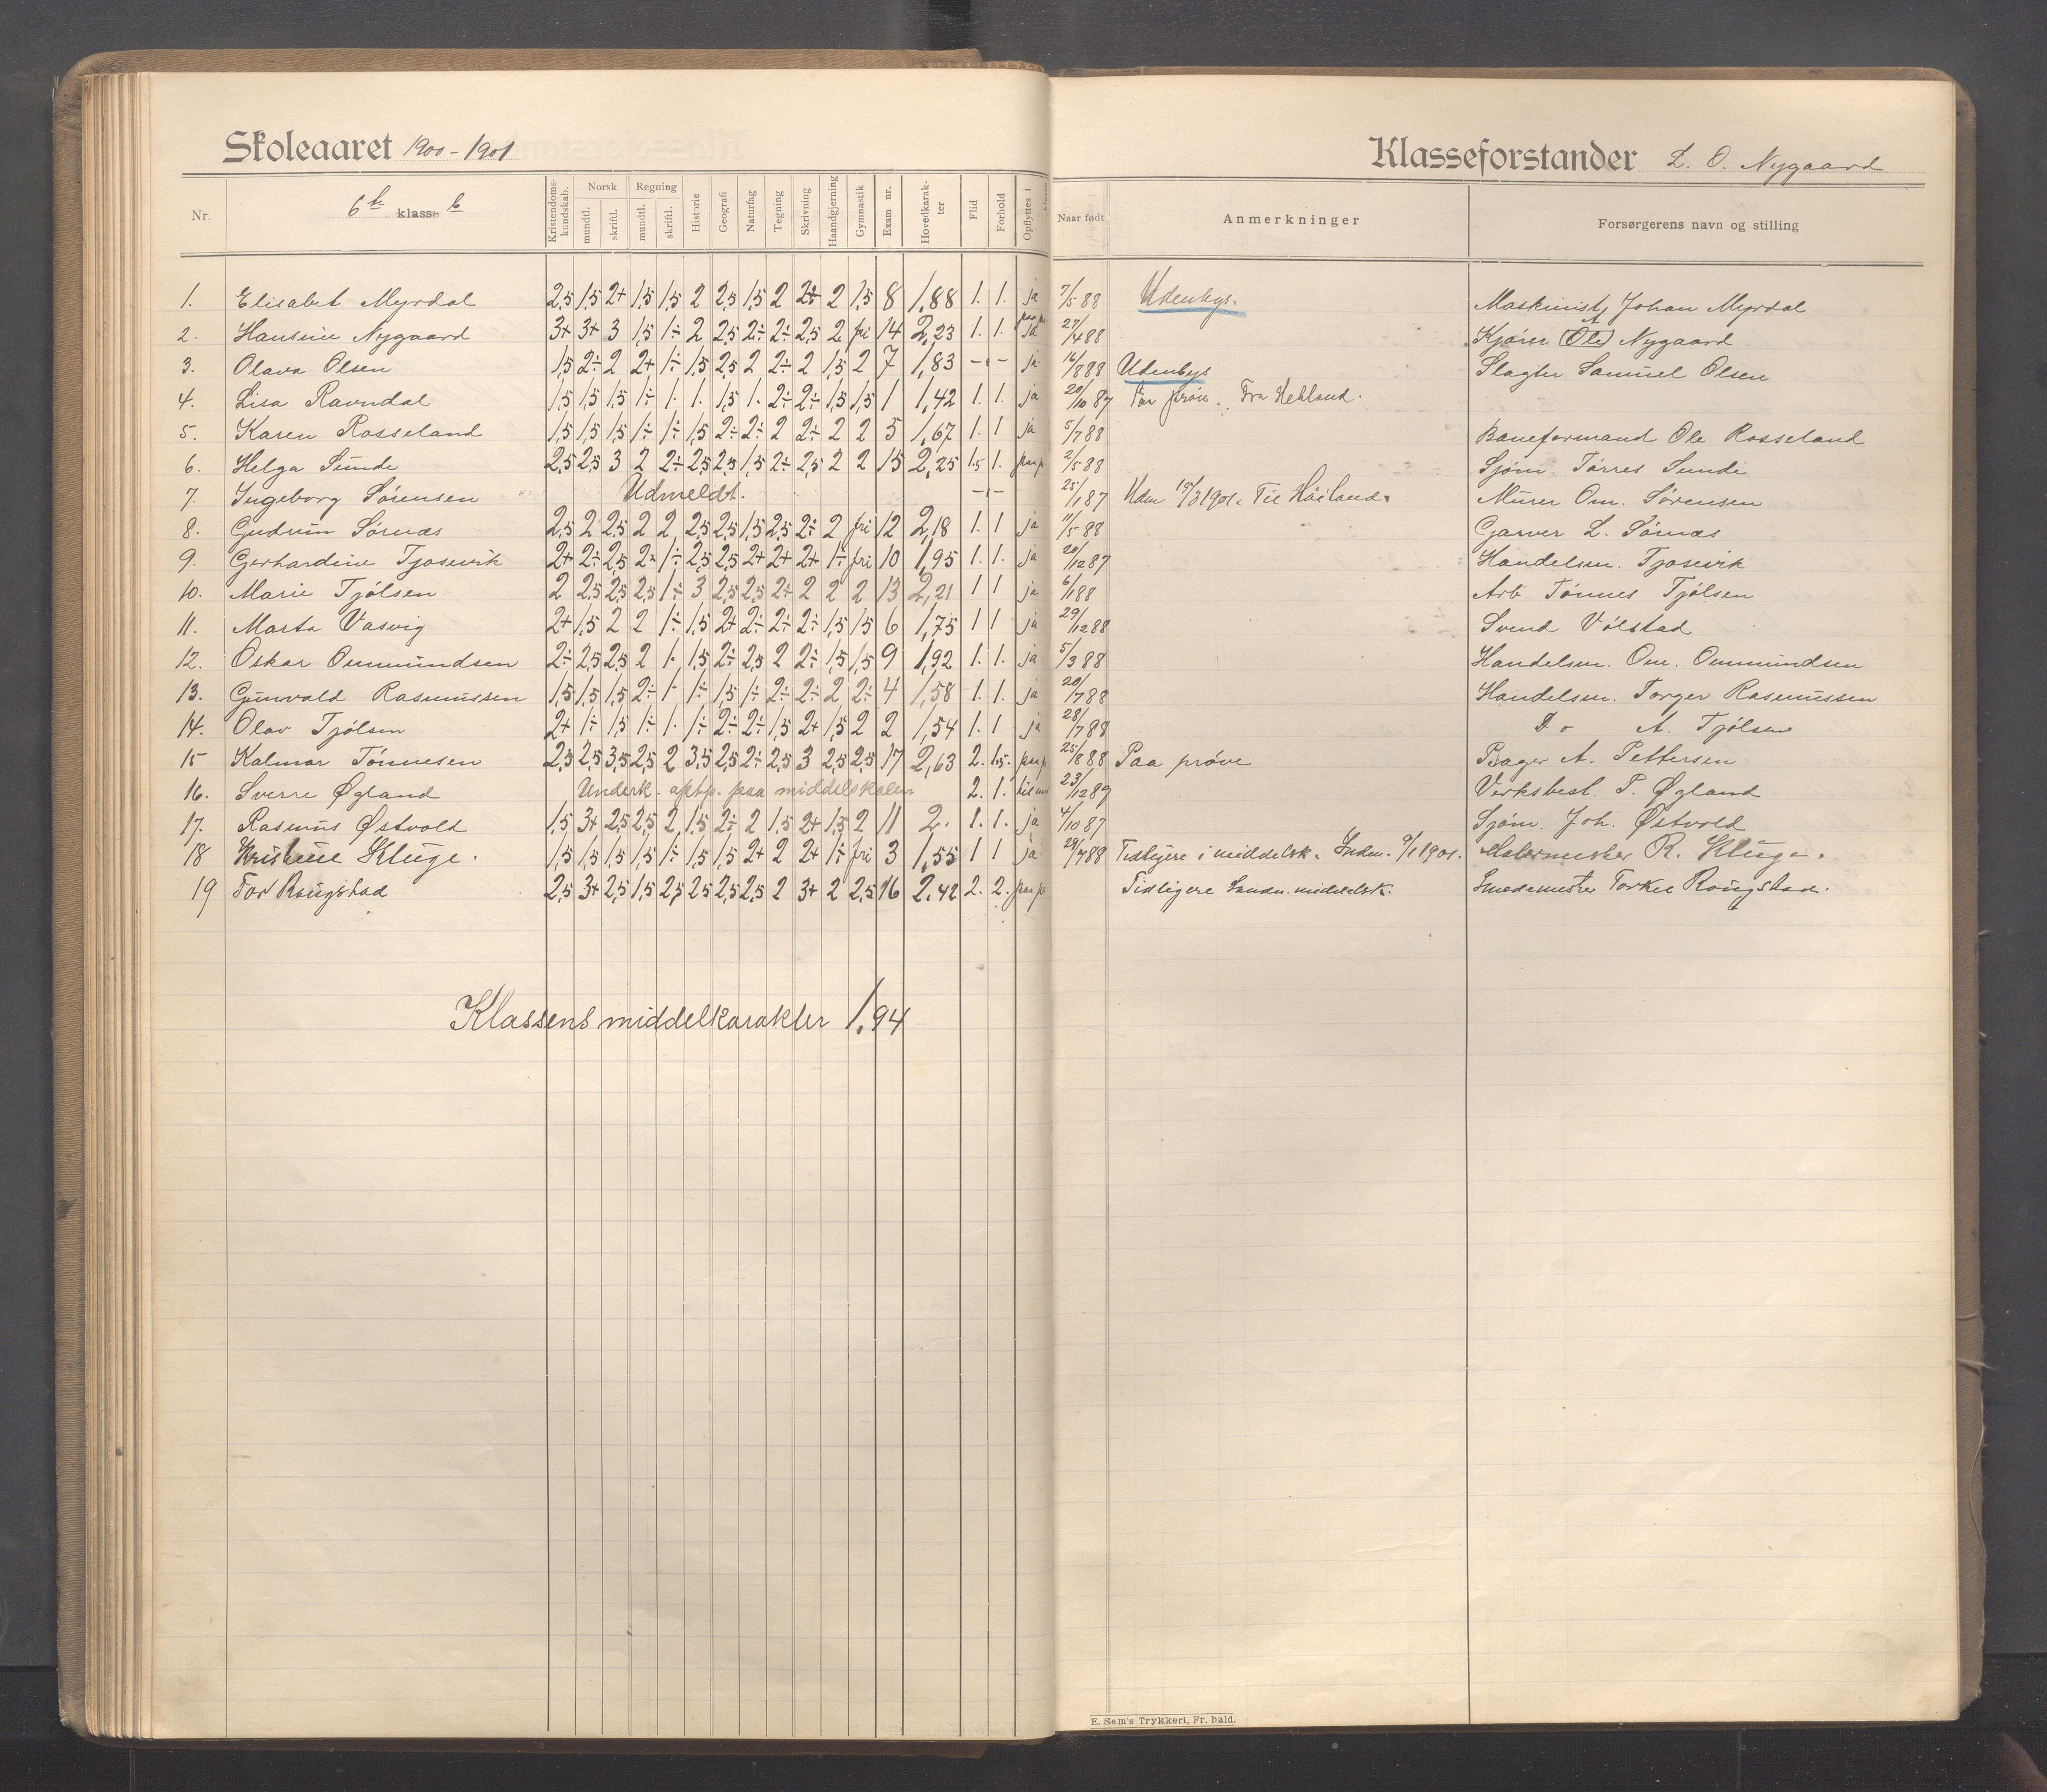 Skoleaaret 1900-1901
Klasseforstander L. O. Nygaard
Nr. 6te klasse b Kristendomskundskab. Norsk mundtl. skriftl. Regning mundtl. skriftl. Historie Geografi Naturfag Tegning Skrivning Haandgjerning Gymnastik Exam nr. Hovedkarakter Flid Forhold Opflyttes i klasse Naar født Anmerkninger Forsørgerens navn og stilling
1. Elisabet Myrdal 2,5 1,5 2+ 1,5 1,5 2 2,5 1,5 2 2+ 2 1,5 8 1,88 1. 1. ja 7/5 88 Udenbys. Maskinist Johan Myrdal
2. Hansine Nygaard 3+ 3+ 3 1,5 1÷ 2 2,5 2÷ 2÷ 2,5 2 fri 14 2,23 1. 1. ja 27/4 88 Kjører (Ole) A Nygaard
3. Olava Olsen 1,5 2÷ 2 2+ 1÷ 1,5 2,5 2 2÷ 2 1,5 2 7 1,83 -"- ja 16/8 88 Udenbys Slagter Samuel Olsen
4. Lisa Ravndal 1,5 1,5 1,5 1÷ 1. 1. 1,5 1. 2÷ 2÷ 1,5 1,5 1 1,42 1. 1. ja 20/10 87 Paa prøve. Fra Hetland.
5. Karen Rosseland 1,5 1,5 1,5 1÷ 1÷ 1,5 2÷ 2÷ 2 2÷ 2 2 5 1,67 1. 1 ja 5/7 88 Baneformand Ole Rosseland
6. Helga Sunde 2,5 2,5 3 2 2÷ 2,5 2,5 1,5 2÷ 2,5 2 2 15 2,25 1.5 1. paa p 2/5 88 Sjøm. Tørres Sunde
7. Ingeborg Sørensen Udmeldt. -"- 25/1 87 Udm 15/3 1901. Til Håiland. Murer Om. Sørensen
8. Gudrun Sørnæs 2,5 2 2,5 2 2 2,5 2,5 1,5 2,5 2÷ 2 fri 12 2,18 1. 1 ja 11/5 88 Garver L. Sørnæs
9. Gerhardine Tjosevik 2+ 2÷ 2,5 2 1÷ 2,5 2,5 2+ 2+ 2+ 1÷ fri 10 1,95 1. 1. ja 20/12 87 Handelsm. Tjosevik
10. Marie Tjølsen 2 2,5 2,5 2,5 1÷ 3 2,5 2,5 2+ 2 2 2 13 2,21 1 1 ja 6/1 88 Arb. Tønnes Tjølsen
11. Marta Vasvig 2+ 1,5 2 2 1÷ 1,5 2+ 2÷ 2÷ 2÷ 1,5 1,5 6 1,75 1 1 ja 29/12 88 Svend Vølstad
12. Oskar Ommundsen 2÷ 2,5 2,5 2 1. 1,5 2÷ 2,5 2 2÷ 1,5 1,5 9 1,92 1. 1. ja 5/3 88 Handelsm. Om. Ommundsen
13. Gunvald Rasmussen 1,5 1,5 1,5 2÷ 1. 1÷ 1,5 1÷ 2÷ 2÷ 2 2÷ 4 1,58 1. 1. ja 20/7 88 Handelsm. Torger Rasmussen
14. Olav Tjølsen 2+ 1÷ 1,5 1÷ 1. 1÷ 2÷ 2÷ 1,5 2+ 1,5 2 2 1,54 1. 1 ja 28/7 88 Do A. Tjølsen
15 Kalmar Tønnesen 2,5 2,5 3,5 2,5 2 3,5 2,5 2÷ 2,5 3 2,5 2,5 17 2,63 2. 1.5. paa p 25/8 88 Paa prøve Bager A. Pettersen
16. Sverre Øgland Underk. optp. paa middelskolen 2. 1. 23/12 89 Verksbest. P. Øgland
17. Rasmus Østvold 1,5 3+ 2,5 2,5 2 1,5 2÷ 2 1,5 2+ 1,5 2 11 2. 1. 1. ja 4/10 87 Sjøm. Joh. Østvold
18 Kristine Kluge. 1,5 1,5 1,5 1,5 1÷ 1,5 1,5 2+ 2 2+ 1÷ fri 3 1,55 1 1 ja 29/7 88 Tidligere i middelsk. Indm. 9/1 1901. Malermester R. Kluge.
19 Tor Raugstad 2,5 3+ 2,5 1,5 2,5 2,5 2,5 2,5 2 3+ 2 2,5 16 2.42 2. 2. paa p Tidligere Sandn. middelsk. Smedemester Torkel Raugstad.
Klassens middelkarakter 1,94
E. Sem's Trykkeri, Fr. hald.